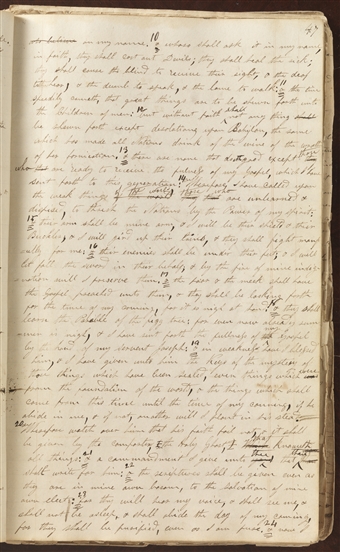 47
to believe on my name. 10 & whoso shall ask it in my name,
in faith, they shall cast out Devils; they shall heal the sick;
they shall cause the blind to receive their sight, & the deaf
to hear, & the dumb to speak, & the lame to walk: 11 & the time
speedily cometh, that great things are to be shown forth unto
the children of men: 12 but without faith shall not any thing
be shown forth except desolations upon Babylon, the same
which has made all Nations drink of the wine of the wrath
of her fornication: 13 & there are none that doeth good except those
who are ready to receive the fulness of my Gospel, which I have
sent forth to this generation: 14 Wherefore I have called upon
the weak things of the world, those who are unlearned &
despise, to thrash the Nations by the Power of my spirit;
15 & their arm shall be mine arm, & I will be their shield & their
buckler, & I will gird up their loins, & they shall fight man-
fully for me: 16 & their enemies shall be under their feet; & I will
let fall the sword in their behalf; & by the fire of mine indig-
nation will I preserve them. 17 & the poor & the meek shall have
the Gospel preached unto them, & they shall be looking forth
for the time of my coming, for it is nigh at hand: 18 & they shall
learn the parable of the fig tree; for even now already sum-
mer is nigh, & I have sent forth the fulness of my Gospel
by the hand of my servant Joseph: 19 & in weakness have I blessed
him, & I have given unto him the keys of the mystery of
those things which have been sealed, even things which were
from the foundation of the world, & the things which shall
come from this time until the time of my coming, if he
abide in me, & if not, another will I plant in his stead
20 Wherefore watch over him that his faith fail not, & it shall
be given by the comforter, the Holy Ghost, that knoweth
all things: 21 & a commandment I give unto thee, that thou
shall write for him: 22 & the scriptures shall be given even as
they are in mine own bosom, to the salvation of mine
own elect: 23 for they will hear my voice, & shall see me, &
shall not be asleep, & shall abide the day of my coming,
for they shall be purified, even as I am pure. 24 & now I